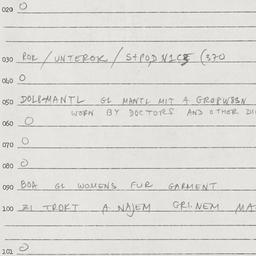 020 0
030 ROK / UNTEROK / SPODNICE (370
040 0
050 DOLR-MANTL GL MANTL MIT 4 GROPWBSN
WORN BY DOCTORS AND OTHER DI
060 0
070 0
080 0
090 BOA GL WOMENS FUR GARMENT
100 ZI TROKT A NAJEM GRI.NEM MA
101 0